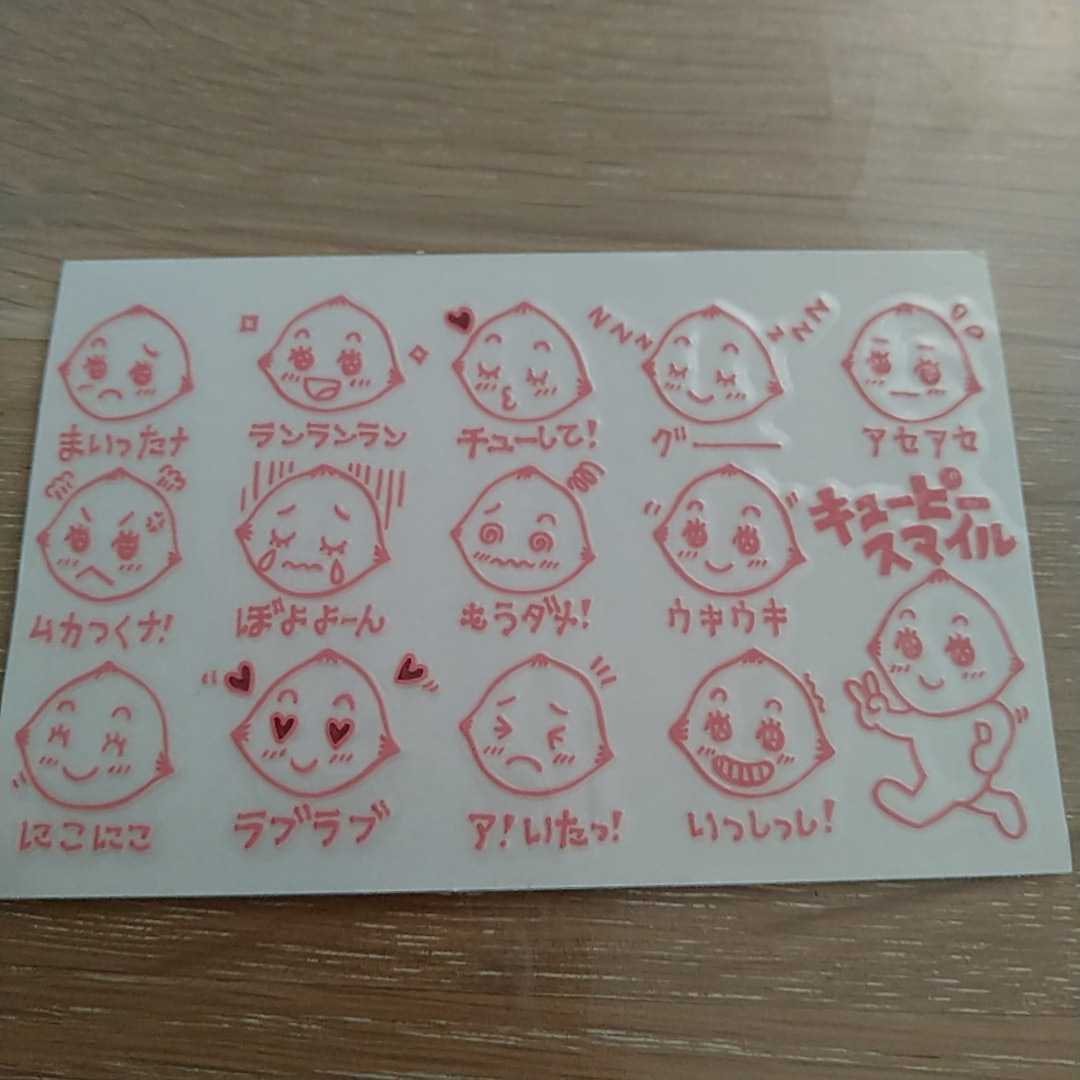 NNN
NNN
まいったナ
ランランラン
チューして!
グー
アセアセ
キューピー
スマイル
ムカつくナ!
ぼよよーん
もうダメ!
ウキウキ
にこにこ
ラブラブ
ア!いたっ!
いっしっし!